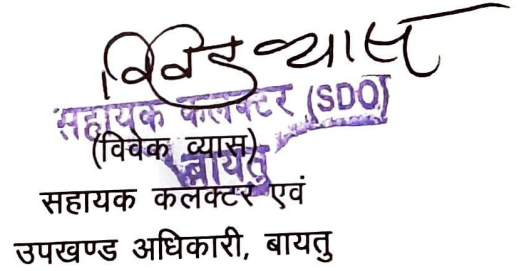 विवेक व्यास
सहायक कलक्टर (SDO)
(विवेक व्यास)
बायतु
सहायक कलक्टर एवं
उपखण्ड अधिकारी, बायतु